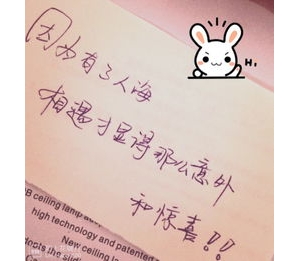 因为有了人海
Hi,
相遇才显得那么意外
和惊喜!!
high technology and patented
New ceiling